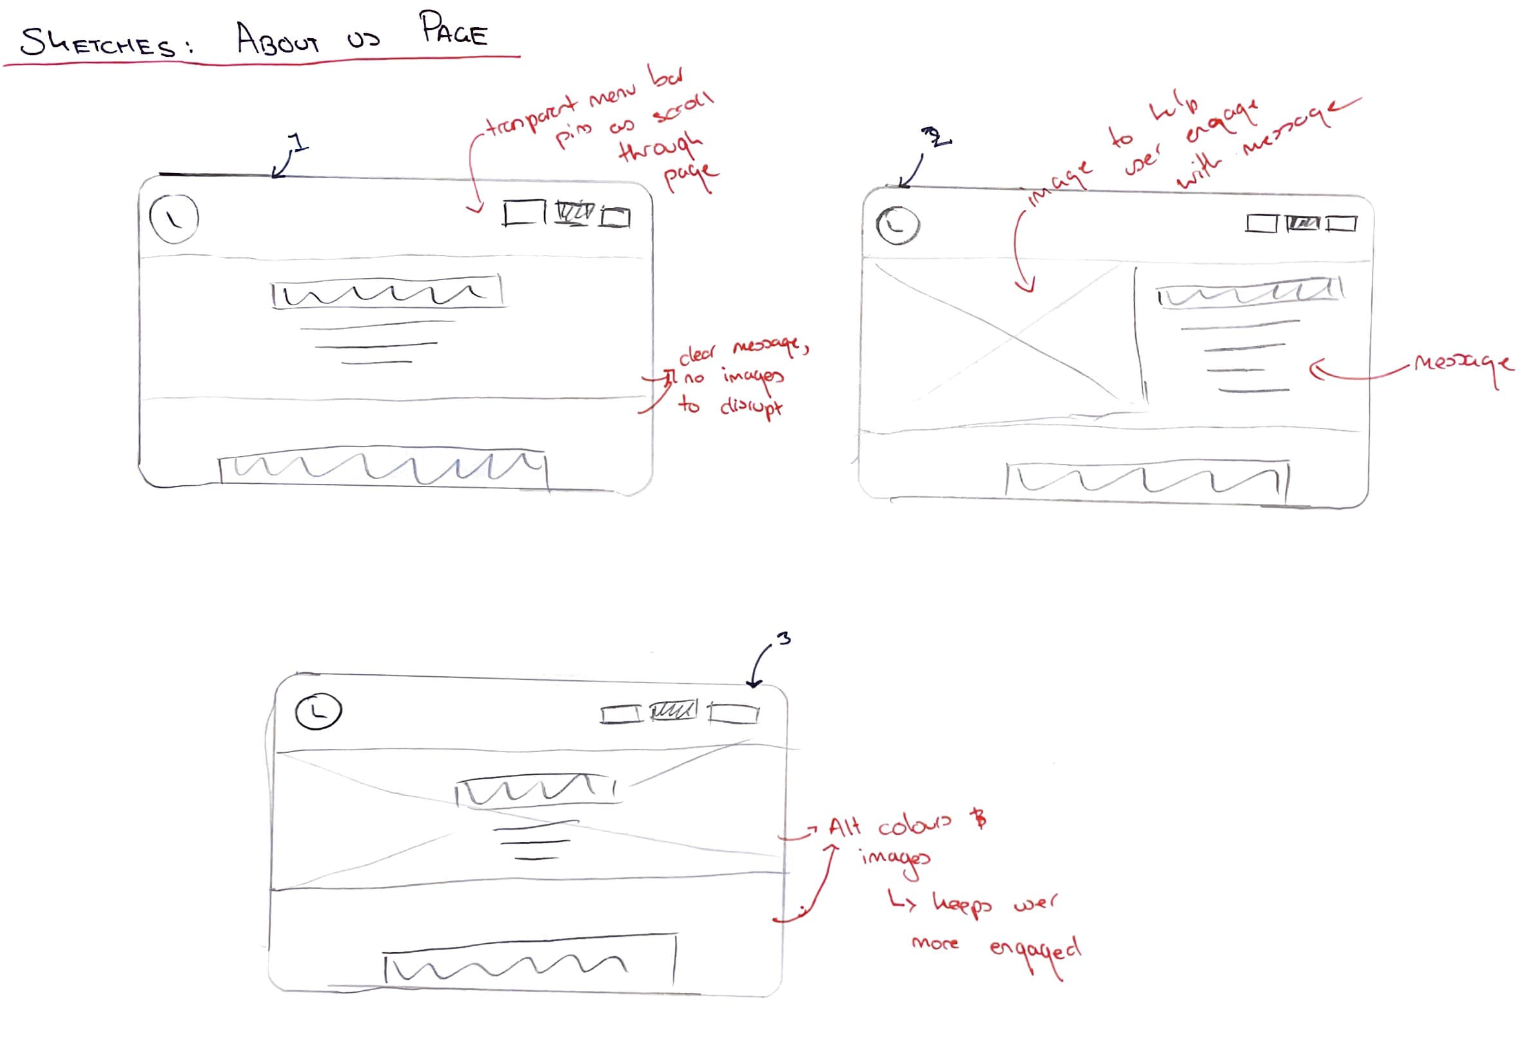 SKETCHES: ABOUT US PAGE
1
transparent menu bar
pins as scroll
through
page
L
clear message,
no images
to disrupt
2
image to help
user engage
with message
L
message
3
L
Alt colours &
images
↳ keeps user
more engaged